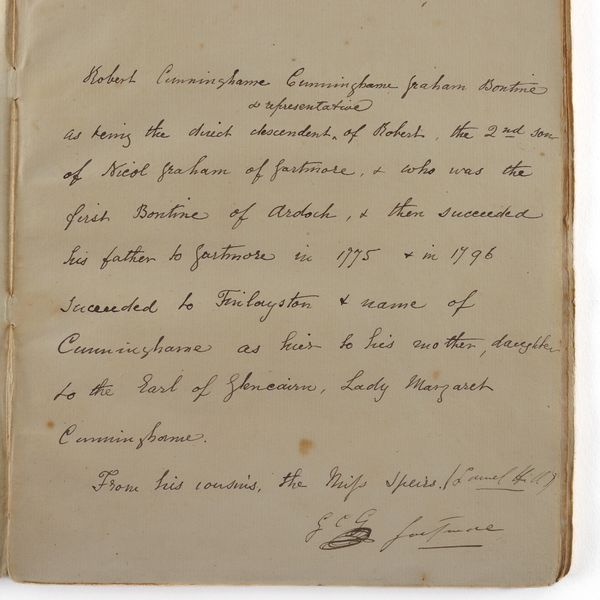 Robert Cunninghame Cunninghame Graham Bontine
& representative
as being the direct descendent, of Robert, the 2nd son
of Nicol Graham of Gartmore, & who was the
first Bontine of Ardoch, & then succeeded
his father to Gartmore in 1775 & in 1796
succeeded to Finlayston & name of
Cunninghame as heir to his mother, daughter
to the Earl of Glencairn, Lady Margaret
Cunninghame.
From his cousins, the Miss Speirs. (Laurel Hill)
G C G Gartmore